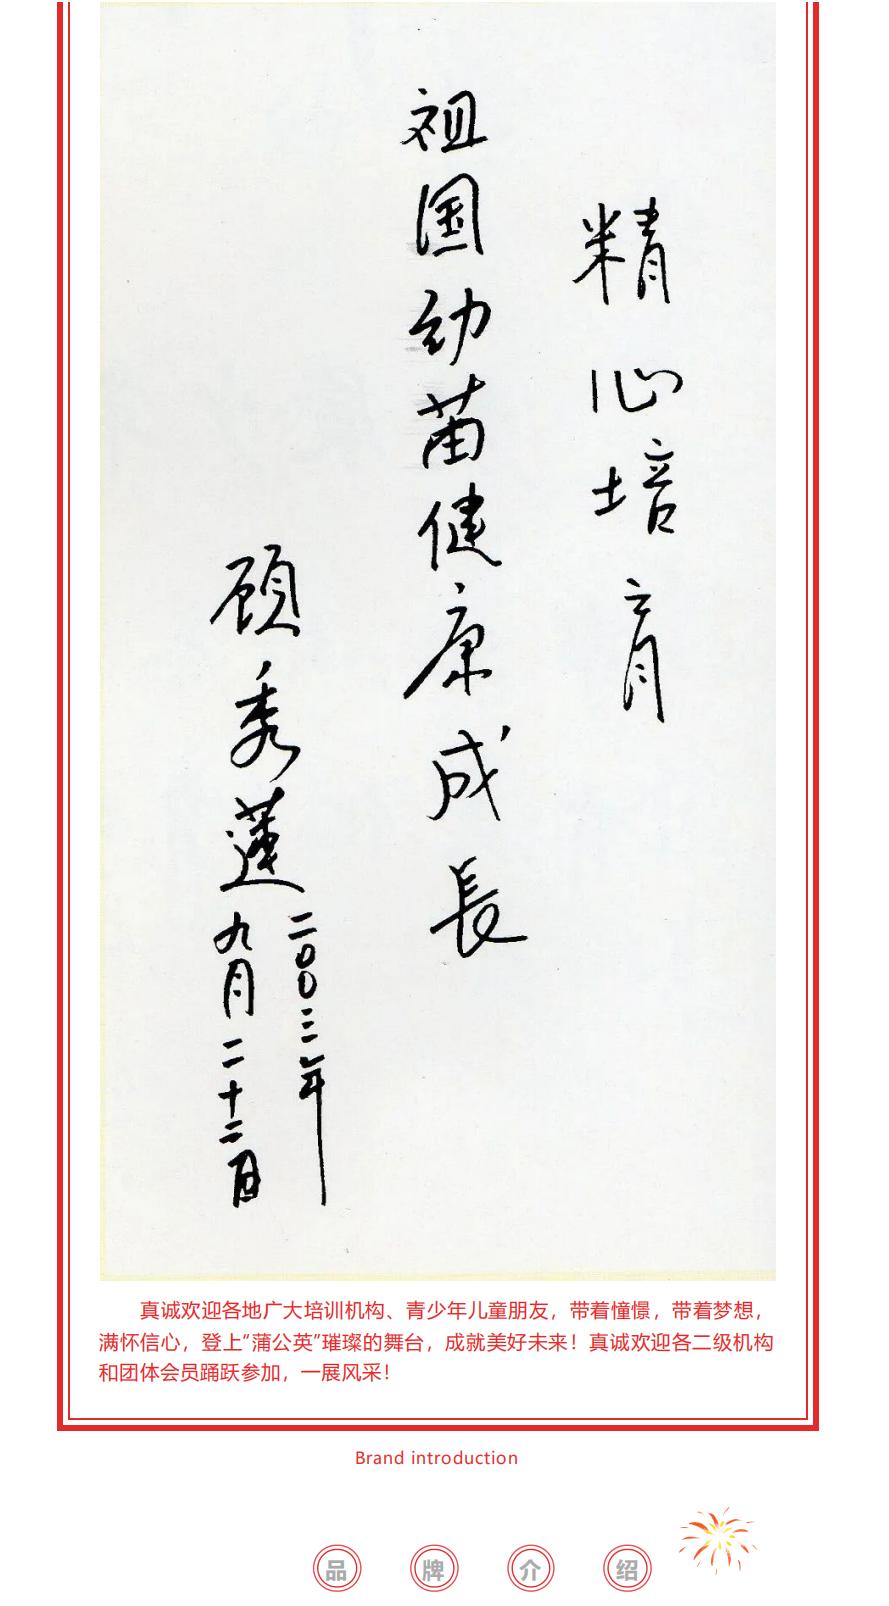 精心培育
祖国幼苗健康成長
顾秀莲
二00三年
九月二十二日
真诚欢迎各地广大培训机构、青少年儿童朋友，带着憧憬，带着梦想，
满怀信心，登上“蒲公英”璀璨的舞台，成就美好未来！真诚欢迎各二级机构
和团体会员踊跃参加，一展风采！
Brand introduction
品牌介绍